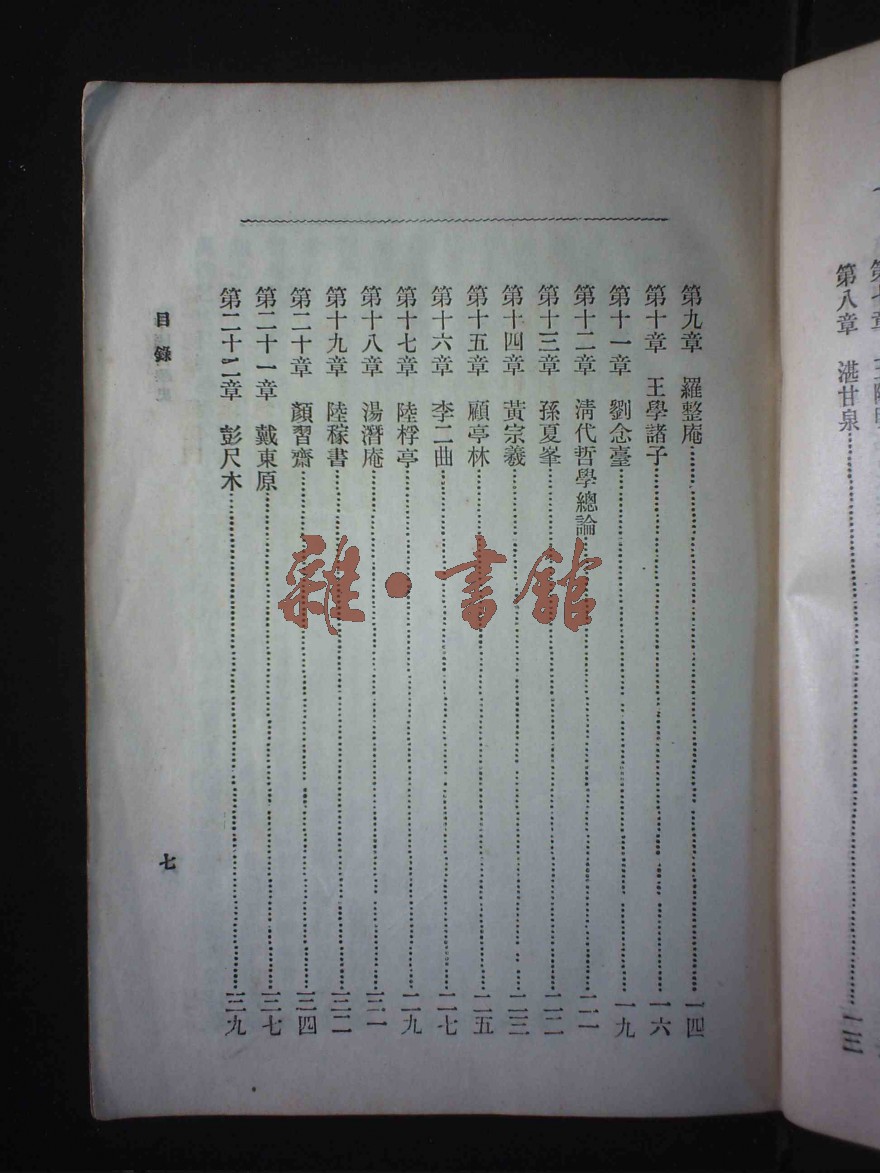 第八章　湛甘泉……一三
第九章　羅整庵……一四
第十章　王學諸子……一六
第十一章　劉念臺……一九
第十二章　淸代哲學總論……二一
第十三章　孫夏峯……二二
第十四章　黃宗羲……二三
第十五章　顧亭林……二五
第十六章　李二曲……二七
第十七章　陸桴亭……二九
第十八章　湯潛庵……三一
第十九章　陸稼書……三二
第二十章　顏習齋……三四
第二十一章　戴東原……三七
第二十二章　彭尺木……三九
目錄
七
雜·書館